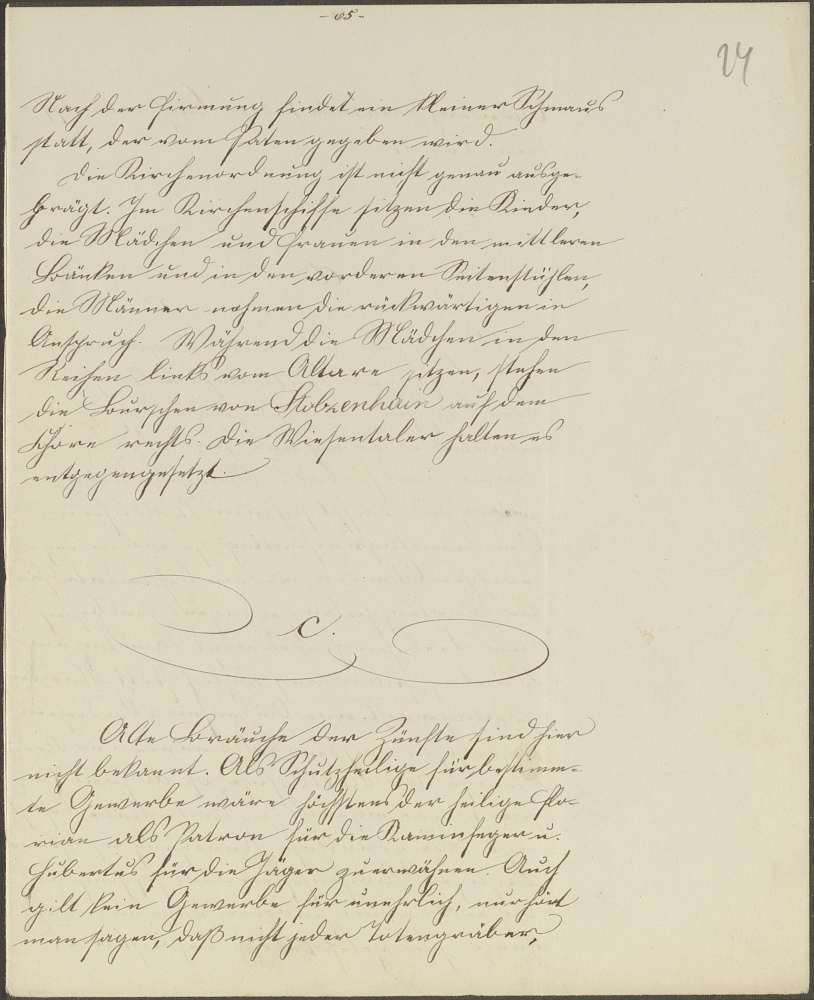 - 65 -
24
Nach der Firmung findet ein kleiner Schmaus
statt, der vom Paten gegeben wird.
Die Kirchenordnung ist nicht genau ausge-
prägt. Im Kirchenschiffe sitzen die Kinder,
die Mädchen und Frauen in den mittleren
Bänken und in den vorderen Seitenstühlen,
die Männer nehmen die rückwärtigen in
Anspruch. Während die Mädchen in den
Reihen links vom Altare sitzen, stehen
die Burschen von Stolzenhain auf dem
Chore rechts. Die Wiesentaler halten es
entgegengesetzt.
C.
Alte Bräuche der Zünfte sind hier
nicht bekannt. Als Schutzheilige für bestimm-
te Gewerbe wäre höchstens der heilige Flo-
rian als Patron für die Kaminfeger u.
Hubertus für die Jäger zu erwähnen. Auch
gilt kein Gewerbe für unehrlich, nur hört
man sagen, daß nicht jeder Totengräber,